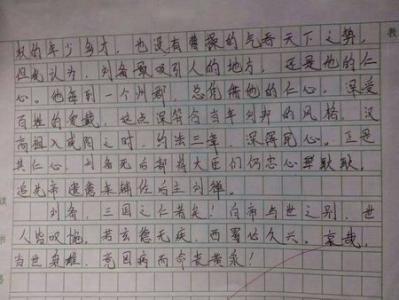 权的年少多才，也没有曹操的气吞天下之势，
但我认为，刘备最吸引人的地方，还是他的仁
心。他每到一个州郡，总凭借他的仁心，深受
百姓的爱戴，这点深符合当年刘邦的风格，汉
高祖入咸阳之时，约法三章，深得民心。正是
其仁心，刘备死后部将大臣们仍忠心耿耿，
追先帝遗意来辅佐后主刘禅。
刘备，三国之仁者矣！白帝与世之别，世
人皆叹惋。若玄德无疾，西蜀必久兴。哀哉，
当世英雄，竟因病而命丧黄泉！